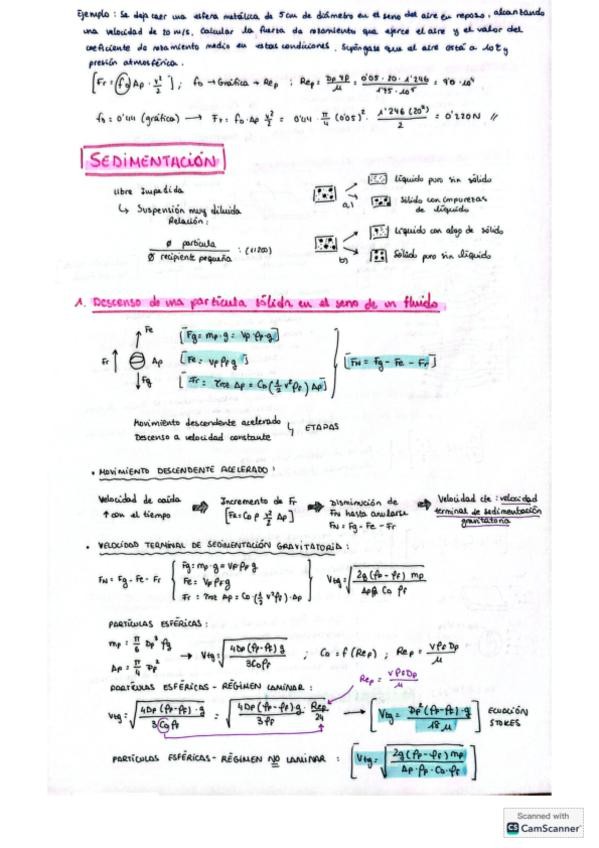 Ejemplo: Se deja caer una esfera metálica de 5 cm de diámetro en el seno del aire en reposo, alcanzando
una velocidad de 20 m/s. Calcular la fuerza de rozamiento que ejerce el aire y el valor del
coeficiente de rozamiento medio en estas condiciones. Supóngase que el aire está a 10ºC y
presión atmosférica.
[Fr = fD Ap · v²/2] ; fD → Gráfica → Rep ; Rep = Dp v ρ/μ = 0'05 · 20 · 1'246 / 175 · 10⁵ = 90 · 10⁴
fD = 0'44 (gráfica) → Fr = fD · Ap v²/2 = 0'44 · π/4 (0'05)² · 1'246 (20²)/2 = 0'220 N //
SEDIMENTACIÓN
Libre Impedida
↳ Suspensión muy diluida
Relación:
Ø partícula / Ø recipiente pequeña : (1:200)
a)
Líquido puro sin sólido
Sólido con impurezas
de líquido
b)
Líquido con algo de sólido
Sólido puro sin líquido
1. Descenso de una partícula sólida en el seno de un fluido.
Fe
Fr ↑ Ap
Fg
[Fg = mp · g = Vp · ρp · g]
[Fe = Vp ρf g]
[Fr = Ap = CD (1/2 v² ρf) Ap]
[FN = Fg - Fe - Fr]
Movimiento descendente acelerado
Descenso a velocidad constante
↳ ETAPAS
• MOVIMIENTO DESCENDENTE ACELERADO:
Velocidad de caída
↑ con el tiempo
⇒ Incremento de Fr
[Fr = CD ρ v²/2 Ap]
⇒ Disminución de
FN hasta anularse
FN = Fg - Fe - Fr
⇒ Velocidad cte: velocidad
terminal de sedimentación
gravitatoria
• VELOCIDAD TERMINAL DE SEDIMENTACIÓN GRAVITATORIA:
FN = Fg - Fe - Fr
Fg = mp · g = Vp ρp g
Fe = Vp ρf g
Fr = Ap = CD · (1/2 v² ρf) · Ap
Vtg = √(2g (ρp - ρf) mp / Ap ρp CD ρf)
PARTÍCULAS ESFÉRICAS:
mp = π/6 Dp³ ρp
Ap = π/4 Dp²
→ Vtg = √(4Dp (ρp - ρf) g / 3CD ρf) ; CD = f (Rep) ; Rep = v ρf Dp / μ
PARTÍCULAS ESFÉRICAS - RÉGIMEN LAMINAR:
Rep = v ρf Dp / μ
Vtg = √(4Dp (ρp - ρf) · g / 3 CD ρf) = √(4Dp (ρp - ρf) g / 3 ρf · Rep / 24) → [Vtg = Dp² (ρp - ρf) · g / 18 μ] ECUACIÓN
STOKES
PARTÍCULAS ESFÉRICAS - RÉGIMEN NO LAMINAR: [Vtg = √(2g (ρp - ρf) mp / Ap · ρp · CD · ρf)]
Scanned with
CS CamScanner